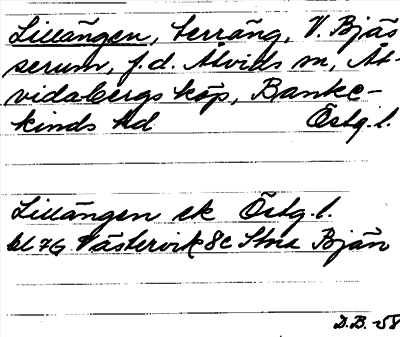 Lillängen, terräng, V. Bjäs
serum, f.d. Åtvids sn, Åt-
vidabergs köp, Banke-
kinds hd Östg.l.
Lillängen ek Östg.l.
bl 7G Västervik 8c Stns Bjän
D.B. -58